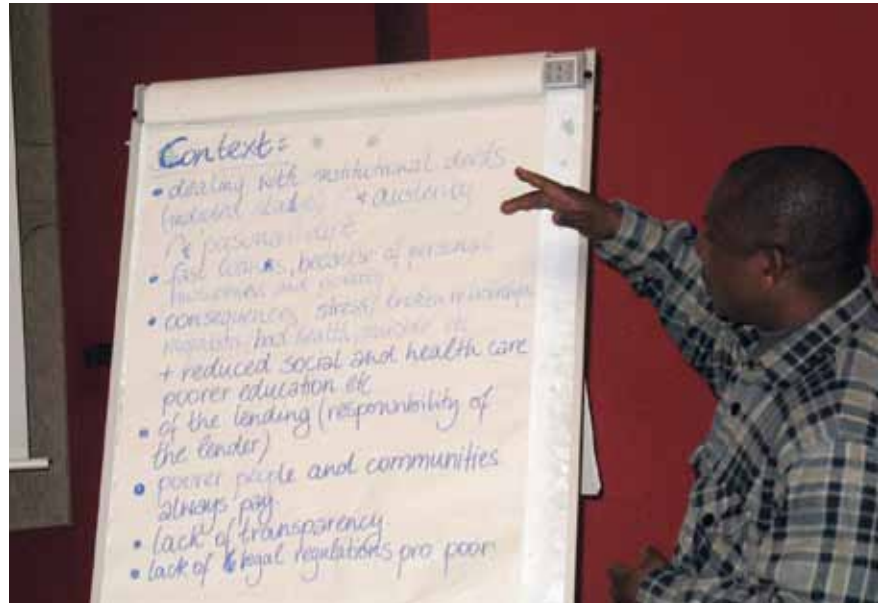 Context:
• dealing with institutional debts
+ austerity
& personal
• fast loans, because of personal
and
• consequences stress, broken relationships
bad health, suicide etc
+ reduced social and health care
poorer education etc
• of the lending (responsibility of
the lender)
• poorer people and communities
always pay.
• lack of transparency.
• lack of legal regulations pro poor